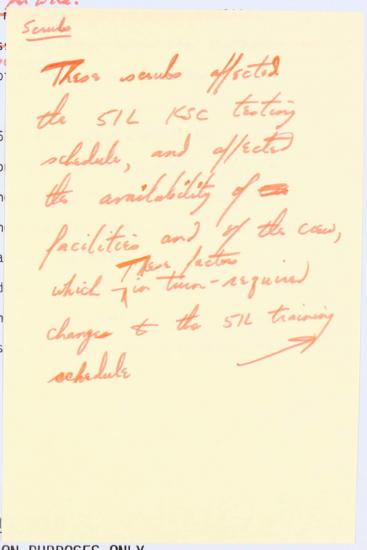 Scrubs
These scrubs affected
the 51L KSC testing
schedule, and affected
the availability of
facilities and of the crew,
These factors
which in turn required
changes to the 51L training
schedule
ON PURPOSES ONLY